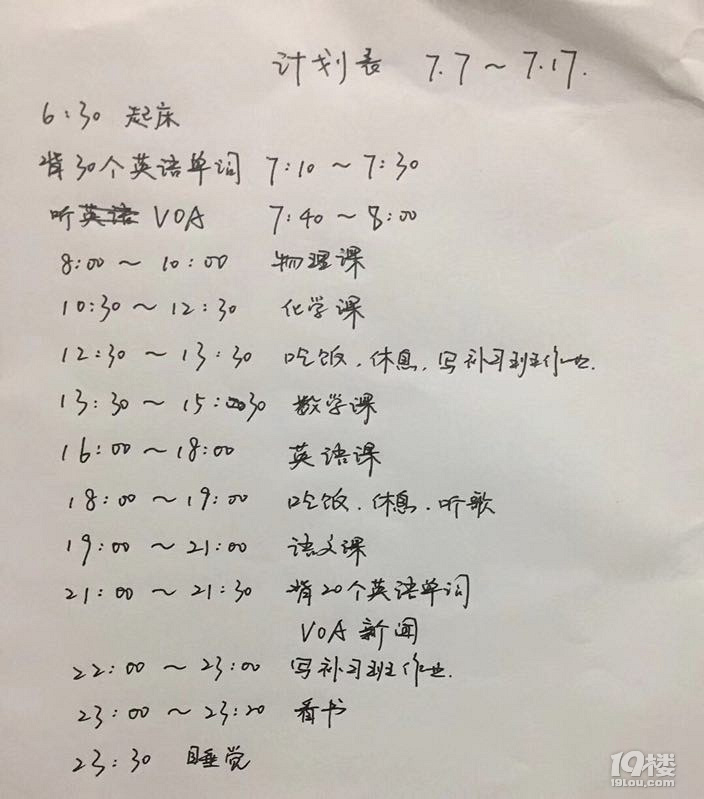 计划表 7.7～7.17.
6:30 起床
背30个英语单词 7:10～7:30
听英语 VOA 7:40～8:00
8:00～10:00 物理课
10:30～12:30 化学课
12:30～13:30 吃饭、休息、写补习班作业.
13:30～15:30 数学课
16:00～18:00 英语课
18:00～19:00 吃饭、休息、听歌
19:00～21:00 语文课
21:00～21:30 背20个英语单词
VOA新闻
22:00～23:00 写补习班作业.
23:00～23:20 看书
23:30 睡觉
19楼
19lou.com